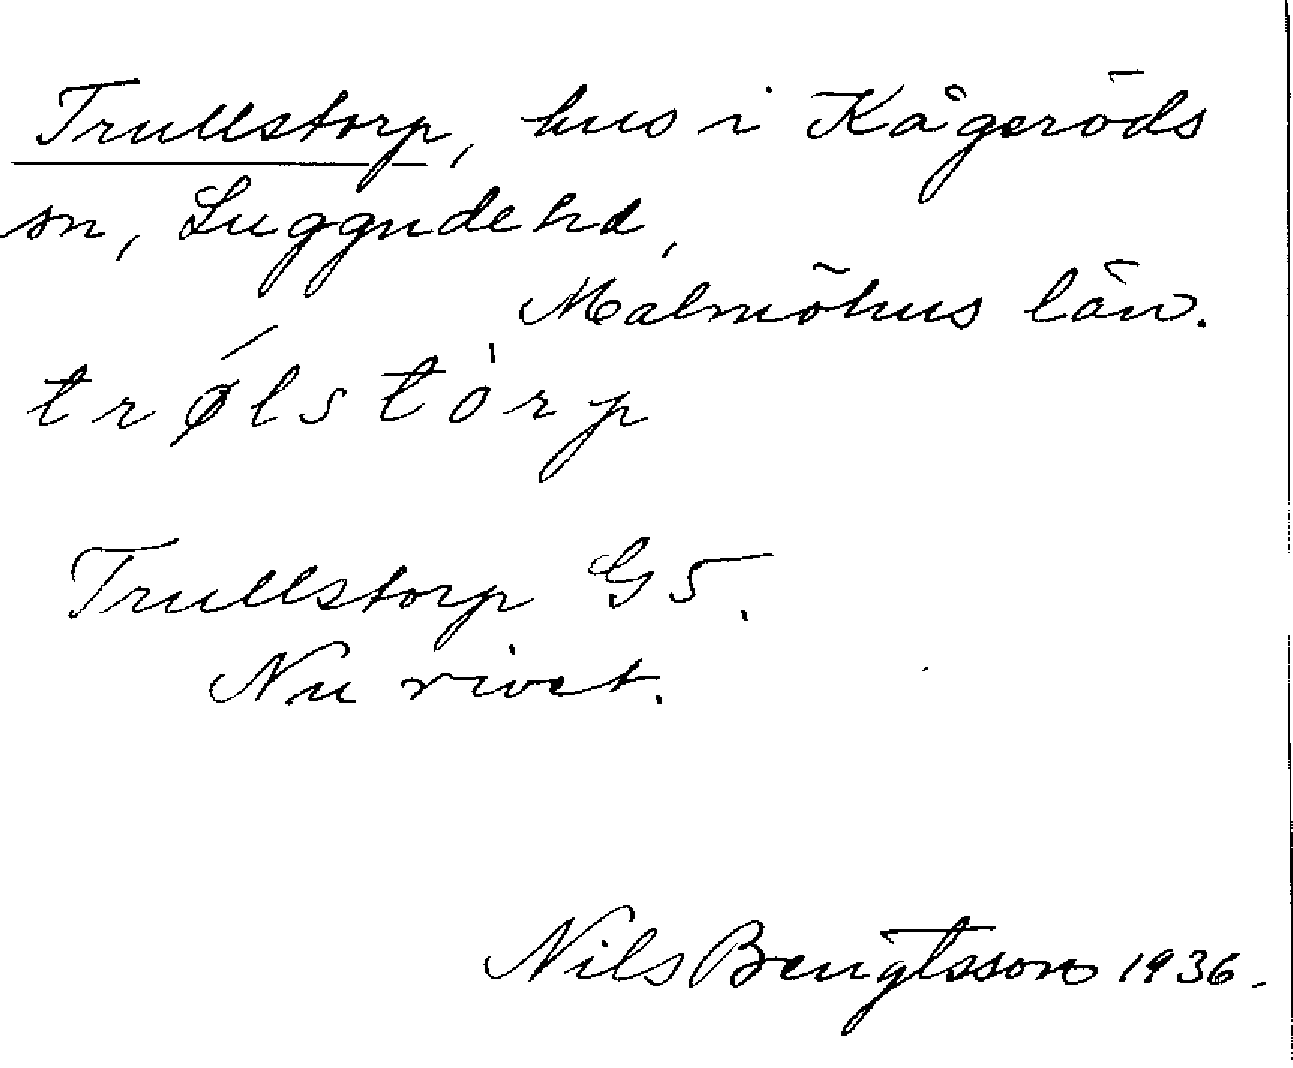 Trullstorp, hus i Kågeröds
sn, Luggude hd,
Malmöhus län.
trǿlstòrp
Trullstorp G5.
Nu rivet.
Nils Bengtsson 1936.